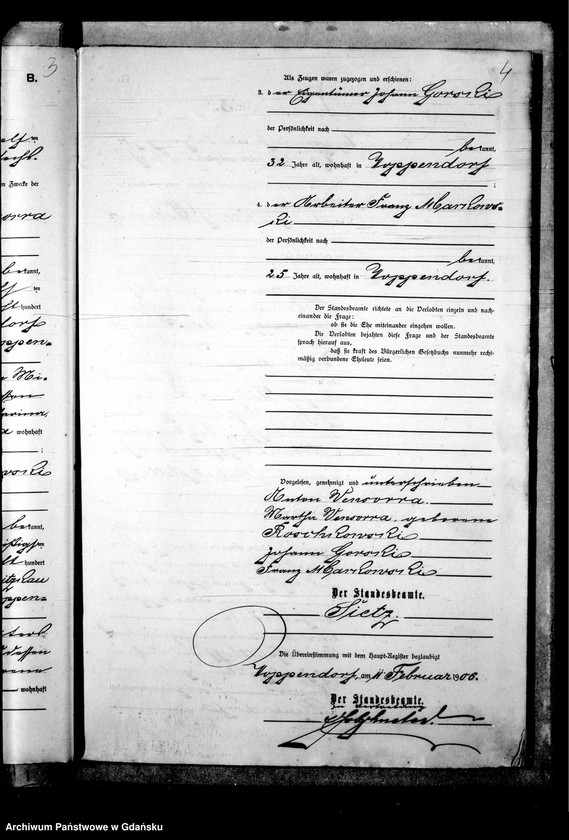 B.
3
4
Als Zeugen waren zugezogen und erschienen:
3. der Eigentümer Johann Gorski
der Persönlichkeit nach
bekannt,
32 Jahre alt, wohnhaft in Hoppendorf
;
4. der Arbeiter Franz Markows-
ki
der Persönlichkeit nach
bekannt,
25 Jahre alt, wohnhaft in Hoppendorf.
Der Standesbeamte richtete an die Verlobten einzeln und nach-
einander die Frage:
ob sie die Ehe miteinander eingehen wollen.
Die Verlobten bejahten diese Frage und der Standesbeamte
sprach hierauf aus,
daß sie kraft des Bürgerlichen Gesetzbuchs nunmehr recht-
mäßig verbundene Eheleute seien.
Vorgelesen, genehmigt und unterschrieben
Anton Wensorra.
Martha Wensorra, geborene
Roschkowski
Johann Gorski
Franz Markowski
Der Standesbeamte.
Tietz.
Die Übereinstimmung mit dem Haupt-Register beglaubigt
Hoppendorf, am 11 Februar 1906.
Der Standesbeamte.
In Vertretung
m Zwecke der
bekannt,
hundert
wohnhaft
;
bekannt,
hundert
wohnhaft
Archiwum Państwowe w Gdańsku